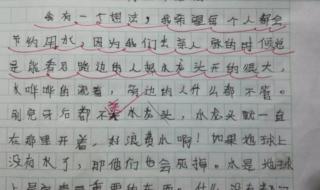 我有一个想法，我希望每个人都会
节约用水，因为我们去亲人家的时候总
是能看见路边的人把水龙头开的很大，
水哗哗的流着，旁边的人什么都不管。
刷完牙后都不关水龙头，水龙头就一直
在那里开着，好浪费水啊！如果地球上
没有水了，那他们也会死掉。水是地球
上最重要的东西，什么没有